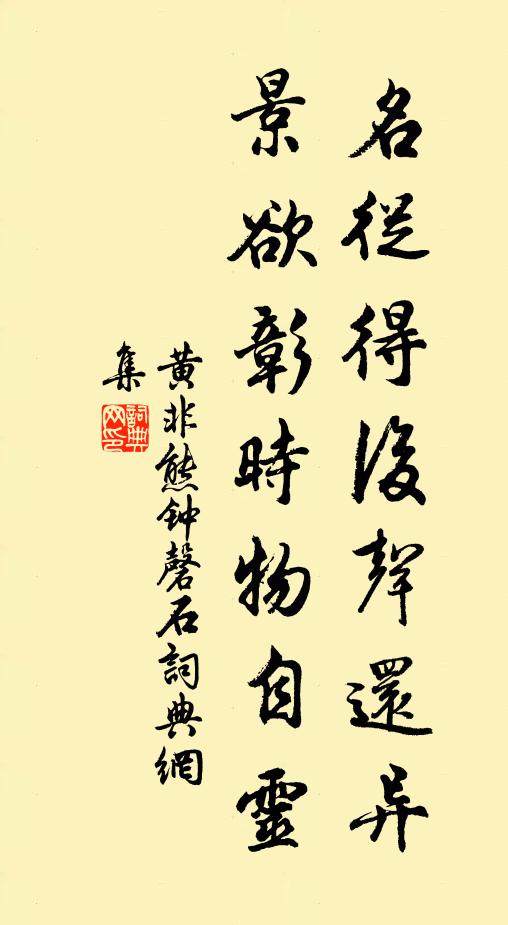 名從得後聲還异
景欲彰時物自靈
黄非熊钟磬石詞典網
集
詞典网印